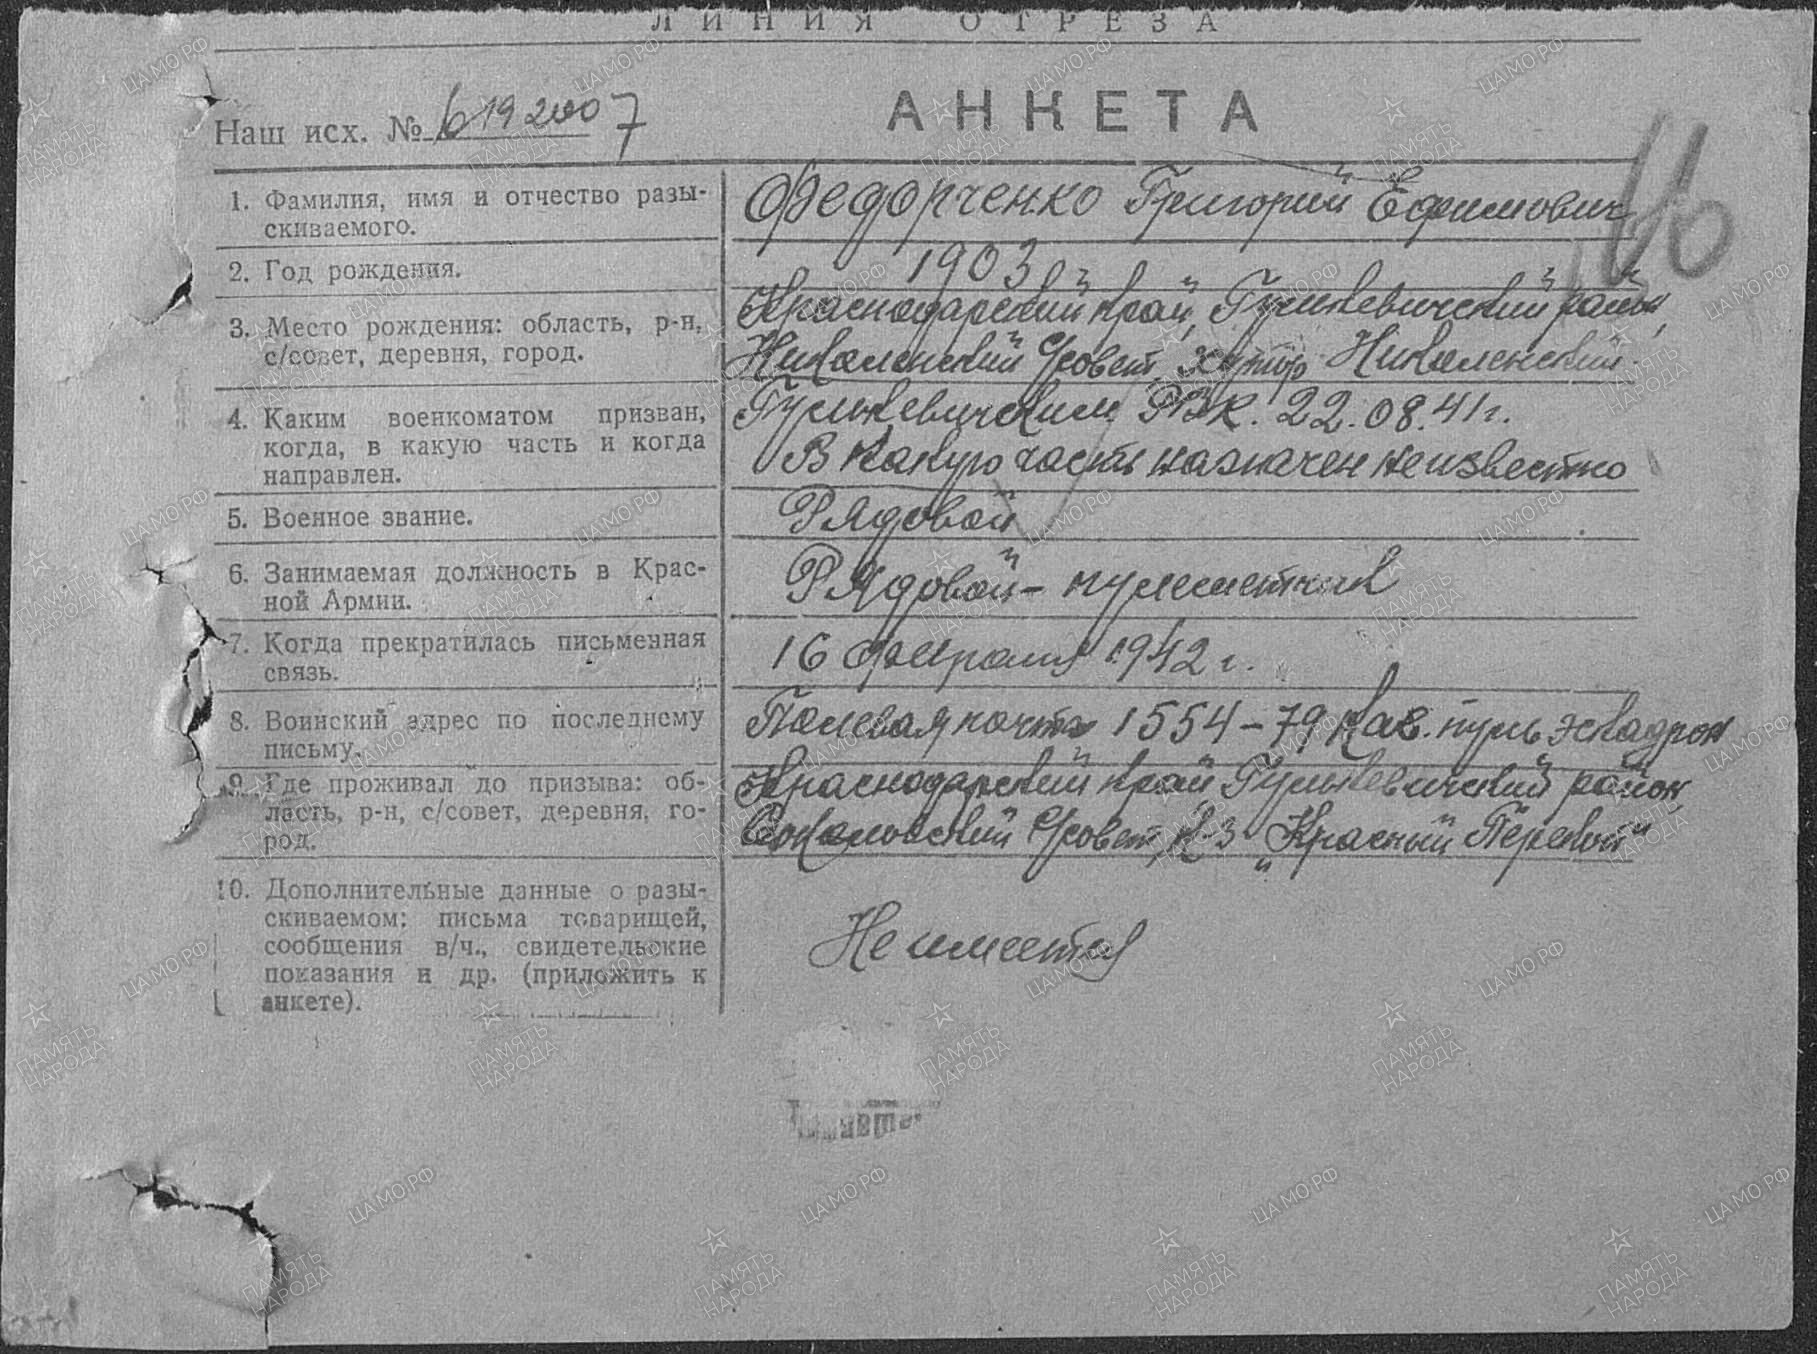 ЛИНИЯ ОТРЕЗА
Наш исх. № 6192007
АНКЕТА
66
1. Фамилия, имя и отчество разы-
скиваемого.
Федорченко Григорий Ефимович
2. Год рождения.
1903
3. Место рождения: область, р-н,
с/совет, деревня, город.
Краснодарский край, Гулькевичский район,
Николенский с/совет, хутор Николенский.
4. Каким военкоматом призван,
когда, в какую часть и когда
направлен.
Гулькевичским РВК. 22.08.41 г.
В какую часть назначен неизвестно
5. Военное звание.
Рядовой
6. Занимаемая должность в Крас-
ной Армии.
Рядовой - пулеметчик
7. Когда прекратилась письменная
связь.
16 февраля 1942 г.
8. Воинский адрес по последнему
письму.
Полевая почта 1554-79 кав. пуль эскадрон
9. Где проживал до призыва: об-
ласть, р-н, с/совет, деревня, го-
род.
Краснодарский край Гулькевичский район,
Соколовский с/совет, к-з „Красный
10. Дополнительные данные о разы-
скиваемом: письма товарищей,
сообщения в/ч., свидетельские
показания и др. (приложить к
анкете).
Не имеется
ПАМЯТЬ НАРОДА
ЦАМО.РФ